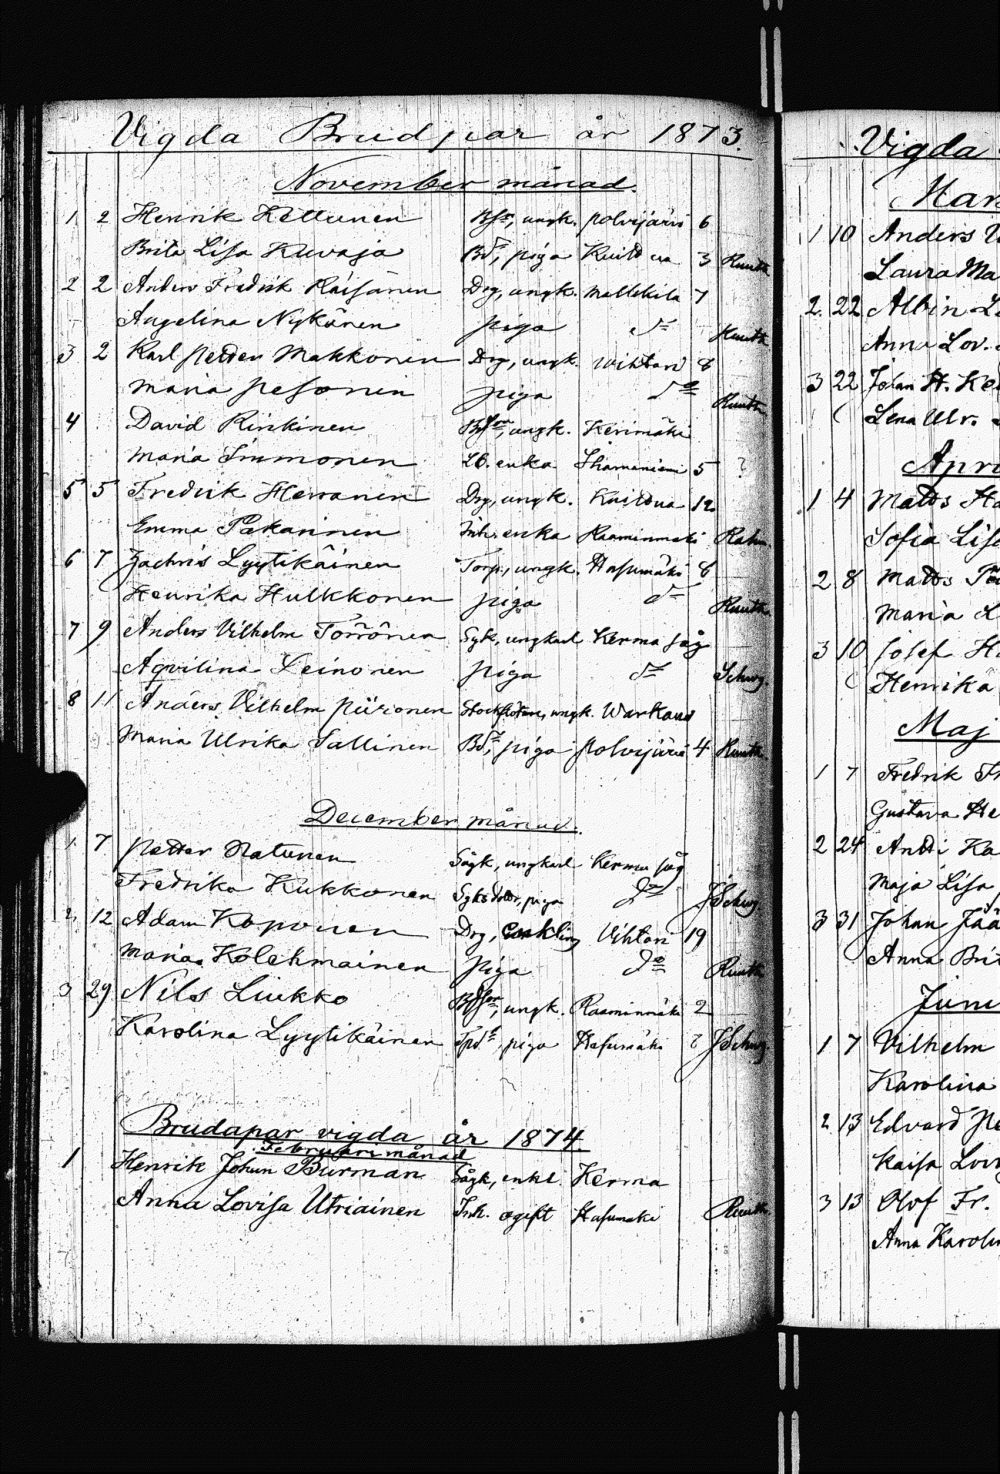 Vigda Brudpar år 1873.
November månad.
1 2 Henrik Kettunen Bdsr, ungk. Polvijärvi 6
Brita Lisa Kuvaja Bdr, piga 3 Ruuth
2 2 Anders Fredrik Räisänen Drg, ungk. 7
Angelina Nykänen piga do Ruuth
3 2 Karl Petter Makkonen Drg, ungk. Wihtari 8
Maria Pesonen piga do Ruuth
4 David Rinkinen ungk. Kerimäki
Maria Immonen enka 5 ?
5 5 Fredrik Herranen Drg, ungk. 12
Emma Pakarinen Inh. enka Raaminmäki Rahm.
6 7 Zachris Lyytikäinen Torp., ungk. Hasumäki 8
Henrika Hulkkonen piga do Ruuth
7 9 Anders Vilhelm Törrönen Sgk, ungkarl Kerma såg
Aqvilina Leinonen piga do Schwg.
8 11 Anders Vilhelm Piironen ungk. Warkaus
Maria Ulrika Sallinen Bdr, piga Polvijärvi 4 Ruuth
December månad.
1 7 Petter Natunen Sågk, ungkarl Kerma såg
Fredrika Kukkonen piga do JSchwg.
2 12 Adam Koponen Drg, Vihtari 19
Maria Kolehmainen piga do Ruuth
3 29 Nils Liukko ungk. Raaminmäki 2
Karolina Lyytikäinen piga Hasumäki ? JSchwg.
Brudapar vigda år 1874.
Februari månad
1 Henrik Johan Burman Sågk, enkl. Kerma
Anna Lovisa Utriainen Inh. ogift Hasumäki Ruuth.
Vigda
Mars
1 10 Anders
Laura Ma
2. 22 Albin
Anna Lov.
3 22 Johan H.
Lena Ulr.
Apri
1 4 Matts
Sofia Lisa
2 8 Matts
Maria
3 10 Josef
Henrika
Maj
1 7 Fredrik
Gustava He
2 24 Antti Ka
Maja Lisa
3 31 Johan Jää
Anna Bri
Juni
1 7 Vilhelm
Karolina
2 13 Edvard Pe
Kaisa Lovi
3 13 Olof Fr.
Anna Karolin